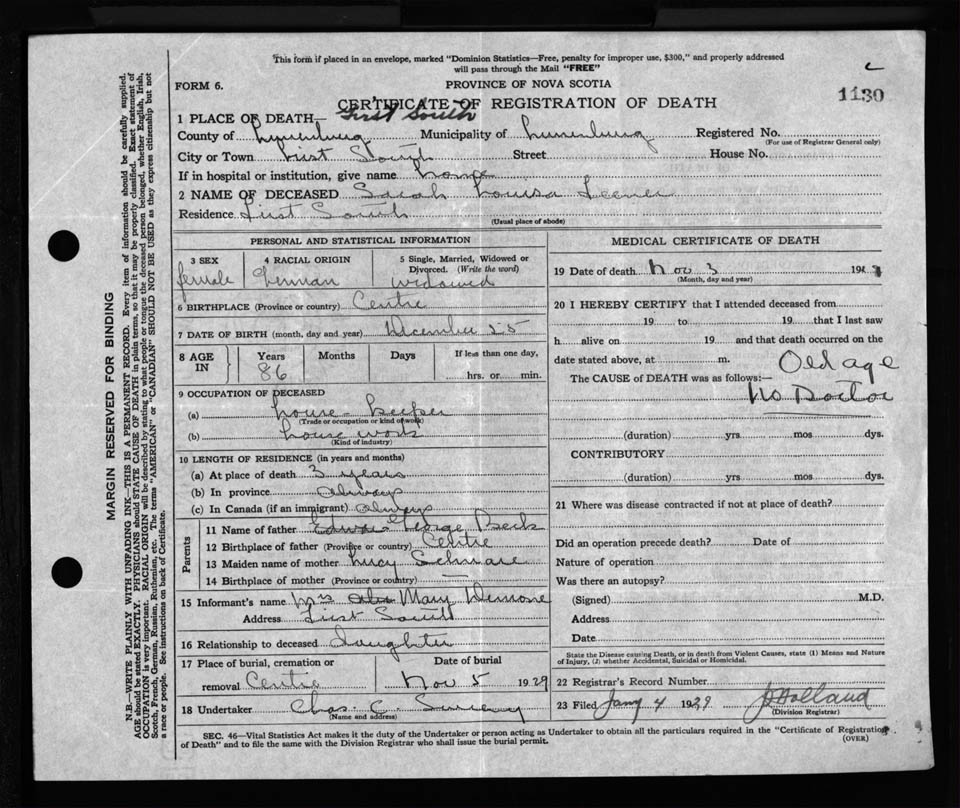 This form if placed in an envelope, marked "Dominion Statistics—Free, penalty for improper use, $300," and properly addressed
will pass through the Mail "FREE"
FORM 6. PROVINCE OF NOVA SCOTIA
1130
CERTIFICATE OF REGISTRATION OF DEATH
1 PLACE OF DEATH— First South
County of Lunenburg Municipality of Lunenburg Registered No.
(For use of Registrar General only)
City or Town First South Street House No.
If in hospital or institution, give name home
2 NAME OF DECEASED Sarah Louisa
Residence First South
(Usual place of abode)
PERSONAL AND STATISTICAL INFORMATION
3 SEX 4 RACIAL ORIGIN 5 Single, Married, Widowed or
Divorced. (Write the word)
female German widowed
6 BIRTHPLACE (Province or country) Centre
7 DATE OF BIRTH (month, day and year) December 25
8 AGE IN Years Months Days If less than one day,
86 hrs. or min.
9 OCCUPATION OF DECEASED
(a) house-keeper
(Trade or occupation or kind of work)
(b) house work
(Kind of industry)
10 LENGTH OF RESIDENCE (in years and months)
(a) At place of death 3 years
(b) In province always
(c) In Canada (if an immigrant) always
Parents
11 Name of father George Beck
12 Birthplace of father (Province or country) Centre
13 Maiden name of mother Lucy
14 Birthplace of mother (Province or country) —
15 Informant's name Mrs Mary
Address First South
16 Relationship to deceased Daughter
17 Place of burial, cremation or Date of burial
removal Centre Nov 5 1929
18 Undertaker Chas. C.
(Name and address)
MEDICAL CERTIFICATE OF DEATH
19 Date of death Nov 3 192
(Month, day and year)
20 I HEREBY CERTIFY that I attended deceased from
19 to 19 that I last saw
h alive on 19 and that death occurred on the
date stated above, at m. Old age
The CAUSE of DEATH was as follows:—
No Doctor
(duration) yrs mos dys.
CONTRIBUTORY
(duration) yrs mos dys.
21 Where was disease contracted if not at place of death?
Did an operation precede death? Date of
Nature of operation
Was there an autopsy?
(Signed) M.D.
Address
Date
State the Disease causing Death, or in death from Violent Causes, state (1) Means and Nature
of Injury, (2) whether Accidental, Suicidal or Homicidal.
22 Registrar's Record Number
23 Filed Jany 4 1929 Holland
(Division Registrar)
SEC. 46—Vital Statistics Act makes it the duty of the Undertaker or person acting as Undertaker to obtain all the particulars required in the "Certificate of Registration
of Death" and to file the same with the Division Registrar who shall issue the burial permit. (OVER)
MARGIN RESERVED FOR BINDING
N.B.—WRITE PLAINLY WITH UNFADING INK—THIS IS A PERMANENT RECORD. Every item of information should be carefully supplied.
AGE should be stated EXACTLY. PHYSICIANS should STATE CAUSE OF DEATH in plain terms, so that it may be properly classified. Exact statement of
OCCUPATION is very important. RACIAL ORIGIN will be described by stating to what people or tongue the deceased person belonged, whether English, Irish,
Scotch, French, German, Russian, Ruthenian, etc. The terms "AMERICAN" or "CANADIAN" SHOULD NOT BE USED as they express citizenship but not
a race or people. See instructions on back of Certificate.